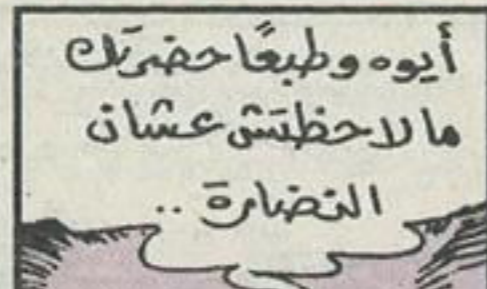 أيوه وطبعًا حضرتك
ما لاحظتش عشان
النضارة ..